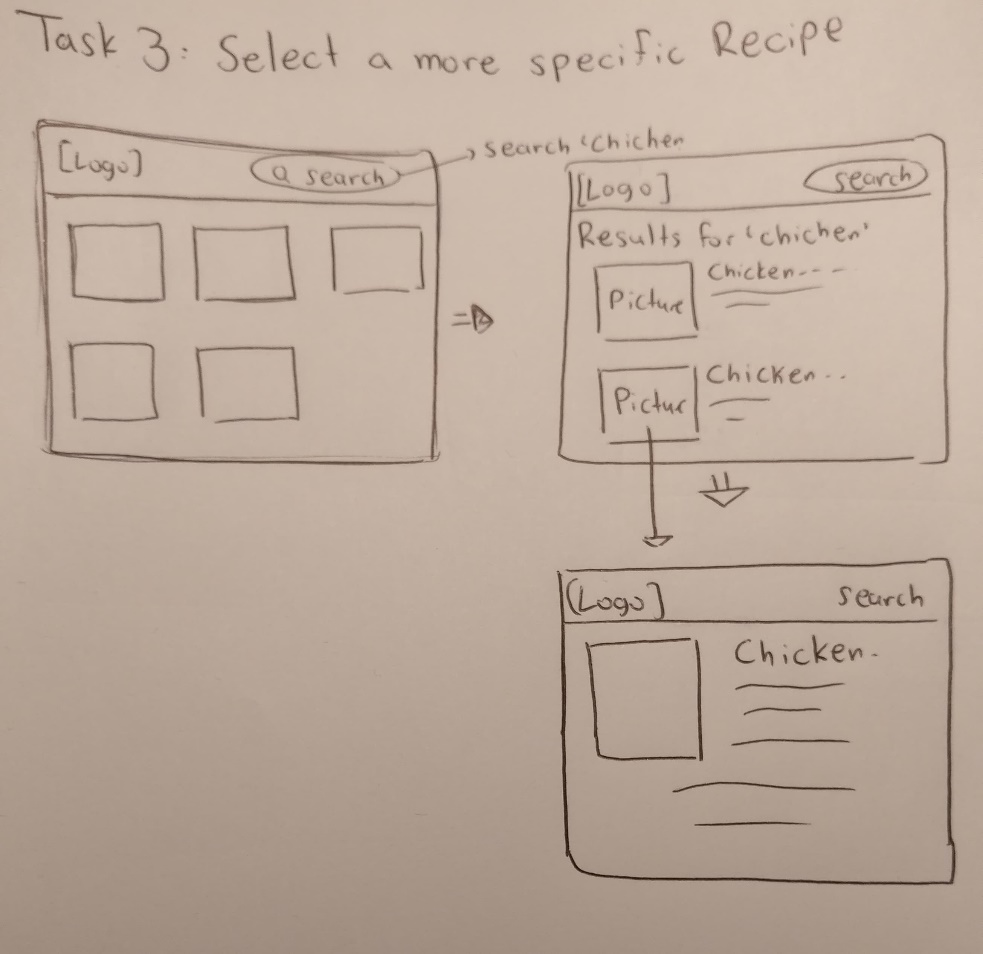 Task 3: Select a more specific Recipe
[Logo]
search
search 'Chichen
[Logo]
search
Results for 'chichen'
Picture
Chicken---
Pictur
Chicken..
[Logo]
search
Chicken.